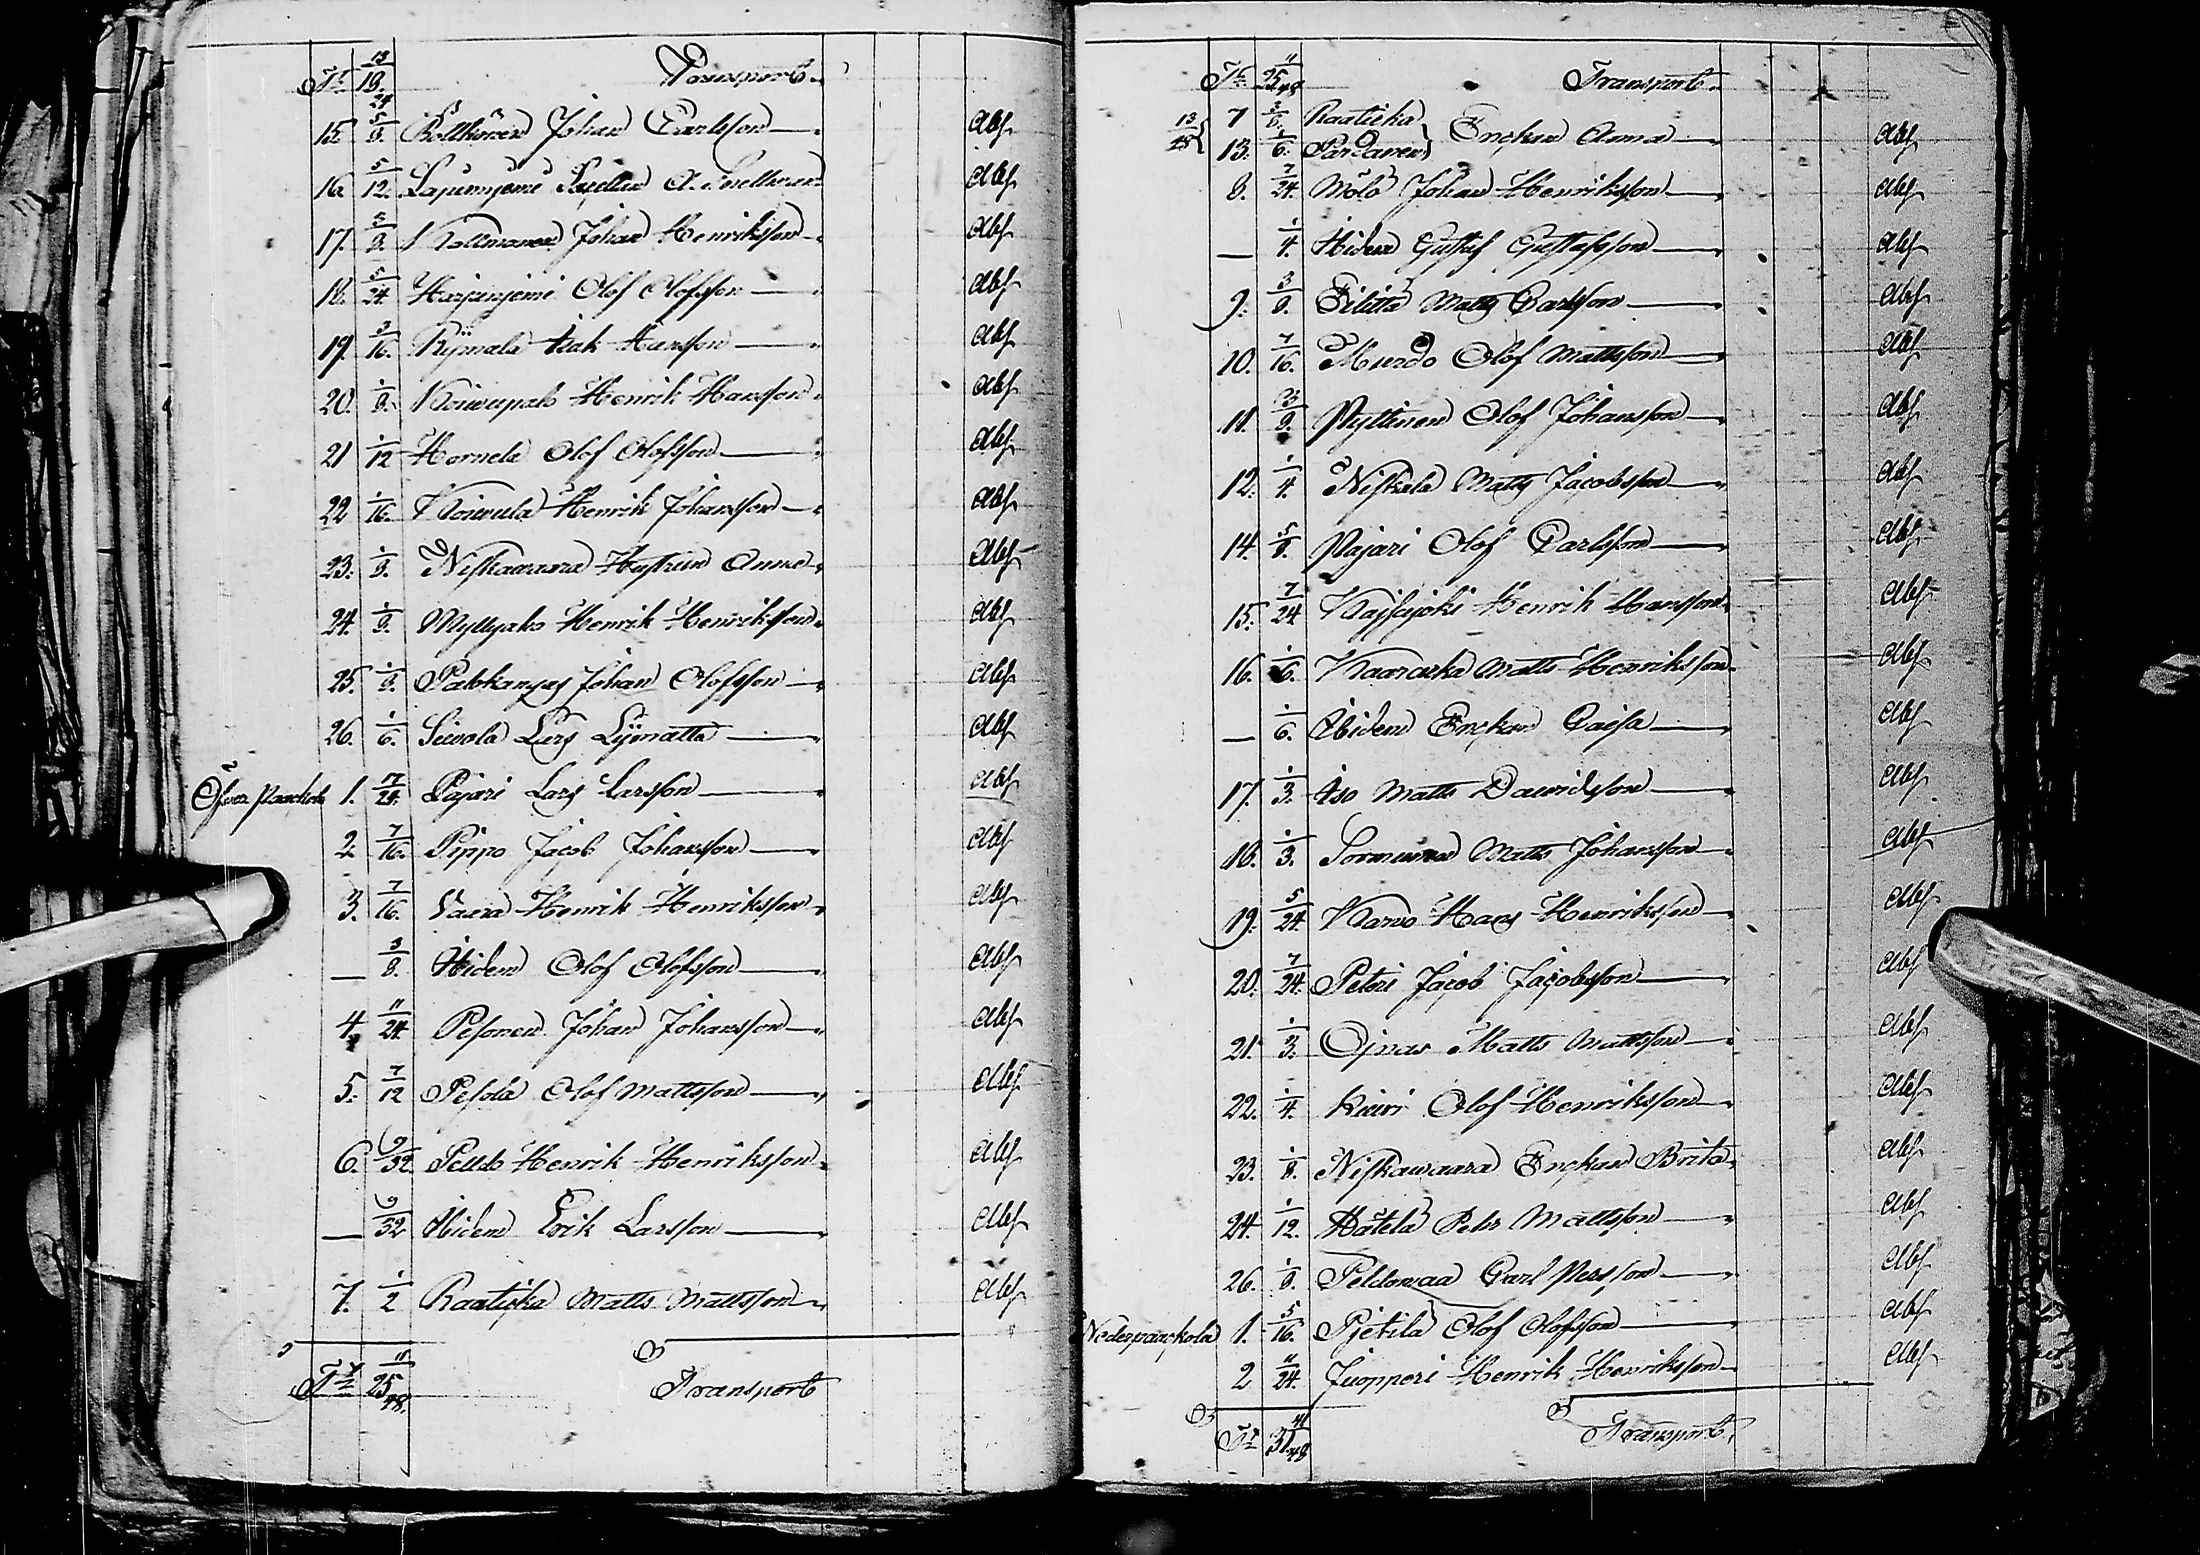 Tr 19 13/24 Transport
15. 5/8. Johan Carlsson Abs
16. 5/12. Abs
17. 3/8. Kallmanen Johan Henriksson Abs
18. 5/24. Harjunjemi Olof Olofsson Abs
19. 3/16. Rÿmala Isak Hansson Abs
20. 1/8. Henrik Hansson Abs
21 1/12 Hornela Olof Olofsson Abs
22 1/16. Koivula Henrik Johansson Abs
23. 1/8. Niskawaara Hustrun Anna Abs
24. 1/8. Myllyaho Henrik Henriksson Abs
25. 1/8. Palokangas Johan Olofsson Abs
26. 1/6. Sievola Lars Lÿmatta Abs
Öfver Paackola 1. 7/24. Pajari Lars Larsson Abs
2 7/16. Pippo Jacob Johansson Abs
3. 7/16. Vaara Henrik Henriksson Abs
— 3/8. Ibidem Olof Olofsson Abs
4. 11/24 Pesonen Johan Johansson Abs
5. 7/12 Pesola Olof Mattsson Abs
6. 9/32 Peldo Henrik Henriksson Abs
— 9/32 Ibidem Erik Larsson Abs
7. 1/2 Raaticka Matts Mattsson Abs
Tr 25 11/48. Transport
Tr 25 11/48 Transport
13/48 { 7 Raaticka
13. 1/6. Pardanen } Enckan Anna Abs
8. 7/24. Mölö Johan Henriksson Abs
— 1/4. Ibidem Gustaf Gustafsson Abs
9. 3/8. Matts Carlsson Abs
10. 7/16. Murdo Olof Mattsson Abs
11. 3/8. Pyttinen Olof Johansson Abs
12. 1/4. Niskala Matts Jacobsson Abs
14. 5/8. Pajari Olof Carlsson Abs
15. 7/24 Kaisajoki Henrik Hansson Abs
16. 1/6. Kaaraska Matts Henriksson Abs
— 1/6. Ibidem Enckan Caisa Abs
17. 1/3. Iso Matts Davidsson Abs
18. 1/3. Tormunen Matts Johansson Abs
19. 5/24. Karvo Hans Henriksson Abs
20. 7/24. Peteri Jacob Jacobsson Abs
21. 1/3. Ojnas Matts Mattsson Abs
22. 1/4. Kiviri Olof Henriksson Abs
23. 1/8. Niskawaara Enckan Brita Abs
24. 1/12. Hätelä Petr Mattsson Abs
26. 1/8. Peldomaa Carl Persson Abs
Nederpaackola 1. 5/16. Pjetilä Olof Olofsson Abs
2 11/24. Juopperi Henrik Henriksson Abs
Tr 31 41/48 Transport